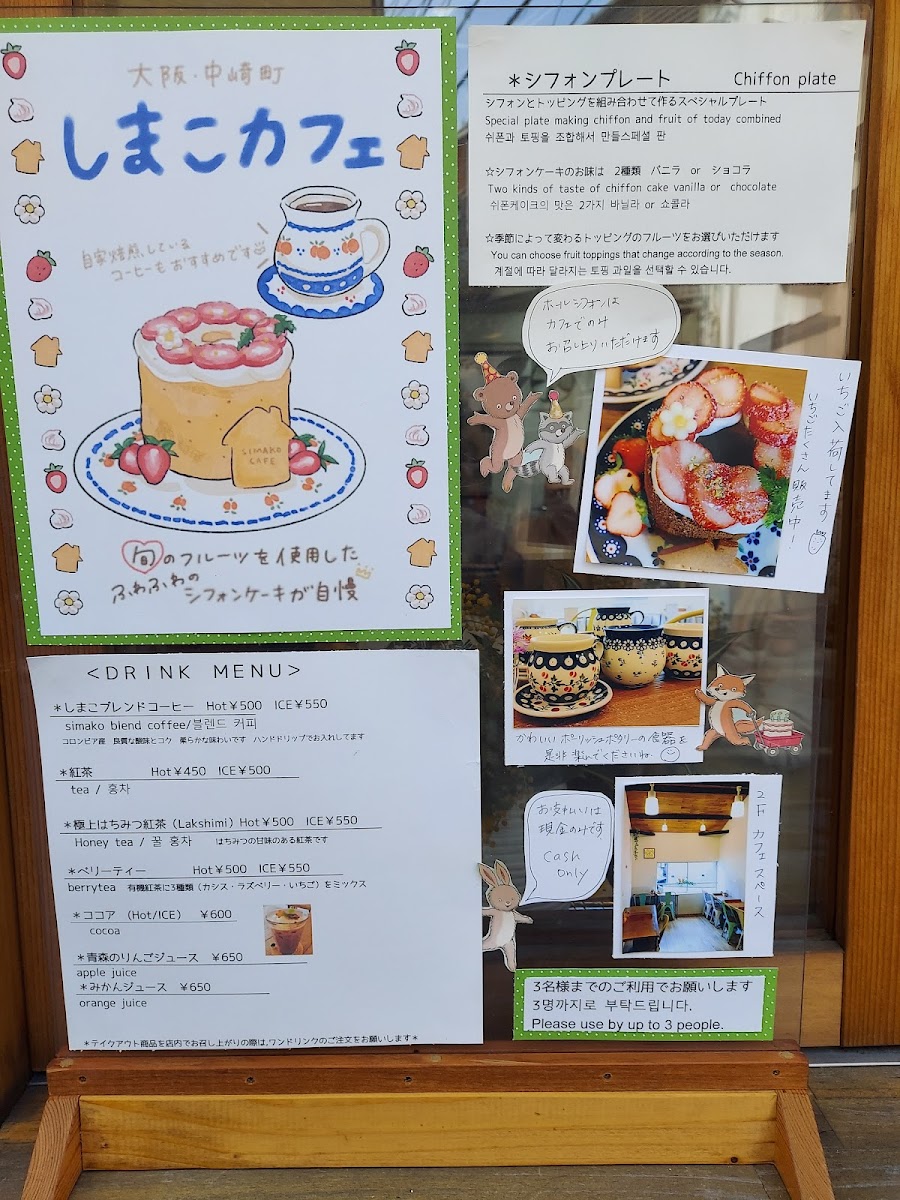 大阪・中崎町
しまこカフェ
自家焙煎している
コーヒーもおすすめです
SIMAKO
CAFE
旬のフルーツを使用した
ふわふわの
シフォンケーキが自慢
＊シフォンプレート Chiffon plate
シフォンとトッピングを組み合わせて作るスペシャルプレート
Special plate making chiffon and fruit of today combined
쉬폰과 토핑을 조합해서 만들스페셜 판
☆シフォンケーキのお味は 2種類 バニラ or ショコラ
Two kinds of taste of chiffon cake vanilla or chocolate
쉬폰케이크의 맛은 2가지 바닐라 or 쇼콜라
☆季節によって変わるトッピングのフルーツをお選びいただけます
You can choose fruit toppings that change according to the season.
계절에 따라 달라지는 토핑 과일을 선택할 수 있습니다.
ホールシフォンは
カフェでのみ
お召し上りいただけます
いちご入荷してます
いちごたくさん販売中！
かわいいポーリッシュポタリーの食器を
是非楽しんでくださいね
お支払いは
現金のみです
Cash
only
2F カフェスペース
3名様までのご利用でお願いします
3명까지로 부탁드립니다.
Please use by up to 3 people.
<DRINK MENU>
＊しまこブレンドコーヒー Hot￥500 ICE￥550
simako blend coffee/블렌드 커피
コロンビア産 良質な酸味とコク 柔らかな味わいです ハンドドリップでお入れしてます
＊紅茶 Hot￥450 ICE￥500
tea / 홍차
＊極上はちみつ紅茶（Lakshimi）Hot￥500 ICE￥550
Honey tea / 꿀 홍차 はちみつの甘味のある紅茶です
＊ベリーティー Hot￥500 ICE￥550
berrytea 有機紅茶に3種類（カシス・ラズベリー・いちご）をミックス
＊ココア （Hot/ICE） ￥600
cocoa
＊青森のりんごジュース ￥650
apple juice
＊みかんジュース ￥650
orange juice
＊テイクアウト商品を店内でお召し上がりの際は,ワンドリンクのご注文をお願いします＊